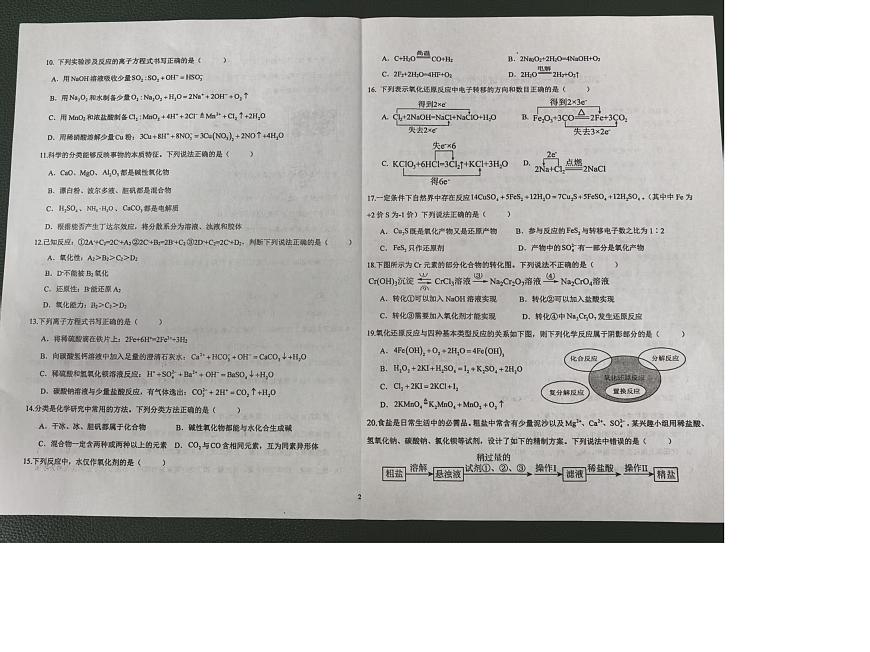 10. 下列实验涉及反应的离子方程式书写正确的是（ ）
A. 用NaOH溶液吸收少量SO₂：SO₂ + OH⁻ = HSO₃⁻
B. 用Na₂O₂和水制备少量O₂：Na₂O₂ + H₂O = 2Na⁺ + 2OH⁻ + O₂↑
C. 用MnO₂和浓盐酸制备Cl₂：MnO₂ + 4H⁺ + 2Cl⁻ ≜ Mn²⁺ + Cl₂↑ +2H₂O
D. 用稀硝酸溶解少量Cu粉：3Cu + 8H⁺ + 8NO₃⁻ = 3Cu(NO₃)₂ + 2NO↑ +4H₂O
11.科学的分类能够反映事物的本质属性。下列说法正确的是（ ）
A. CaO、MgO、Al₂O₃都是碱性氧化物
B. 漂白粉、波尔多液、胆矾都是混合物
C. H₂SO₄、NH₃·H₂O、CaCO₃都是电解质
D. 根据能否产生丁达尔效应，将分散系分为溶液、浊液和胶体
12.已知反应：①2A⁻+C₂=2C⁻+A₂ ②2C⁻+B₂=2B⁻+C₂ ③2D⁻+C₂=2C⁻+D₂，判断下列说法正确的是（ ）
A. 氧化性：A₂＞B₂＞C₂＞D₂
B. D⁻不能被B₂氧化
C. 还原性：B⁻能还原A₂
D. 氧化能力：B₂＞C₂＞D₂
13.下列离子方程式书写正确的是（ ）
A. 将稀硫酸滴在铁片上：2Fe+6H⁺=2Fe³⁺+3H₂
B. 向碳酸氢钙溶液中加入足量的澄清石灰水：Ca²⁺ + HCO₃⁻ + OH⁻ = CaCO₃↓+H₂O
C. 稀硫酸和氢氧化钡溶液反应：H⁺ + SO₄²⁻ + Ba²⁺ + OH⁻ = BaSO₄↓+H₂O
D. 碳酸钠溶液与少量盐酸反应，有气体逸出：CO₃²⁻ + 2H⁺ = CO₂↑ +H₂O
14.分类是化学研究中常用的方法。下列分类方法正确的是（ ）
A. 干冰、冰、胆矾都属于化合物 B. 碱性氧化物都能与水化合生成碱
C. 混合物一定含两种或两种以上的元素 D. CO₂与CO含相同元素，互为同素异形体
15.下列反应中，水仅作氧化剂的是（ ）
2
高温
A. C+H₂O══CO+H₂ B. 2Na₂O₂+2H₂O=4NaOH+O₂
电解
C. 2F₂+2H₂O=4HF+O₂ D. 2H₂O══2H₂+O₂↑
16. 下列表示氧化还原反应中电子转移的方向和数目正确的是（ ）
得到2×e⁻ 得到2×3e⁻
A. Cl₂+2NaOH=NaCl+NaClO+H₂O B. Fe₂O₃+3CO≜2Fe+3CO₂
失去2×e⁻ 失去3×2e⁻
失e⁻×6 2e⁻
C. KClO₃+6HCl=3Cl₂↑+KCl+3H₂O D. 2Na+Cl₂ 点燃══2NaCl
得6e⁻
17.一定条件下自然界中存在反应14CuSO₄ + 5FeS₂ +12H₂O = 7Cu₂S + 5FeSO₄ +12H₂SO₄。（其中中Fe为
+2价S为-1价）下列说法正确的是（ ）
A. Cu₂S既是氧化产物又是还原产物 B. 参与反应的FeS₂与转移电子数之比为1∶2
C. FeS₂只作还原剂 D. 产物中的SO₄²⁻有一部分是氧化产物
18.下图所示为Cr元素的部分化合物的转化图。下列说法不正确的是（ ）
Cr(OH)₃沉淀 ⇌(①)(②) CrCl₃溶液 →(③) Na₂Cr₂O₇溶液 →(④) Na₂CrO₄溶液
A. 转化①可以加入NaOH溶液实现 B. 转化②可以加盐酸实现
C. 转化③需要加入氧化剂才能实现 D. 转化④中Na₂Cr₂O₇发生还原反应
19.氧化还原反应与四种基本类型反应的关系如下图，则下列化学反应属于阴影部分的是（ ）
A. 4Fe(OH)₂ + O₂ + 2H₂O = 4Fe(OH)₃
B. H₂O₂ + 2KI + H₂SO₄ = I₂ + K₂SO₄ + 2H₂O
C. Cl₂ + 2KI = 2KCl + I₂
D. 2KMnO₄ ≜ K₂MnO₄ + MnO₂ + O₂↑
化合反应 分解反应
氧化还原反应
复分解反应 置换反应
20.食盐是日常生活中的必需品。粗盐中常含有少量泥沙以及Mg²⁺、Ca²⁺、SO₄²⁻。某兴趣小组用稀盐酸、
氢氧化钠、碳酸钠、氯化钡等试剂，设计了如下的精制方案。下列说法中错误的是（ ）
稍过量的
粗盐 溶解→ 悬浊液 试剂①、②、③→ 操作Ⅰ→ 滤液 稀盐酸→ 操作Ⅱ→ 精盐